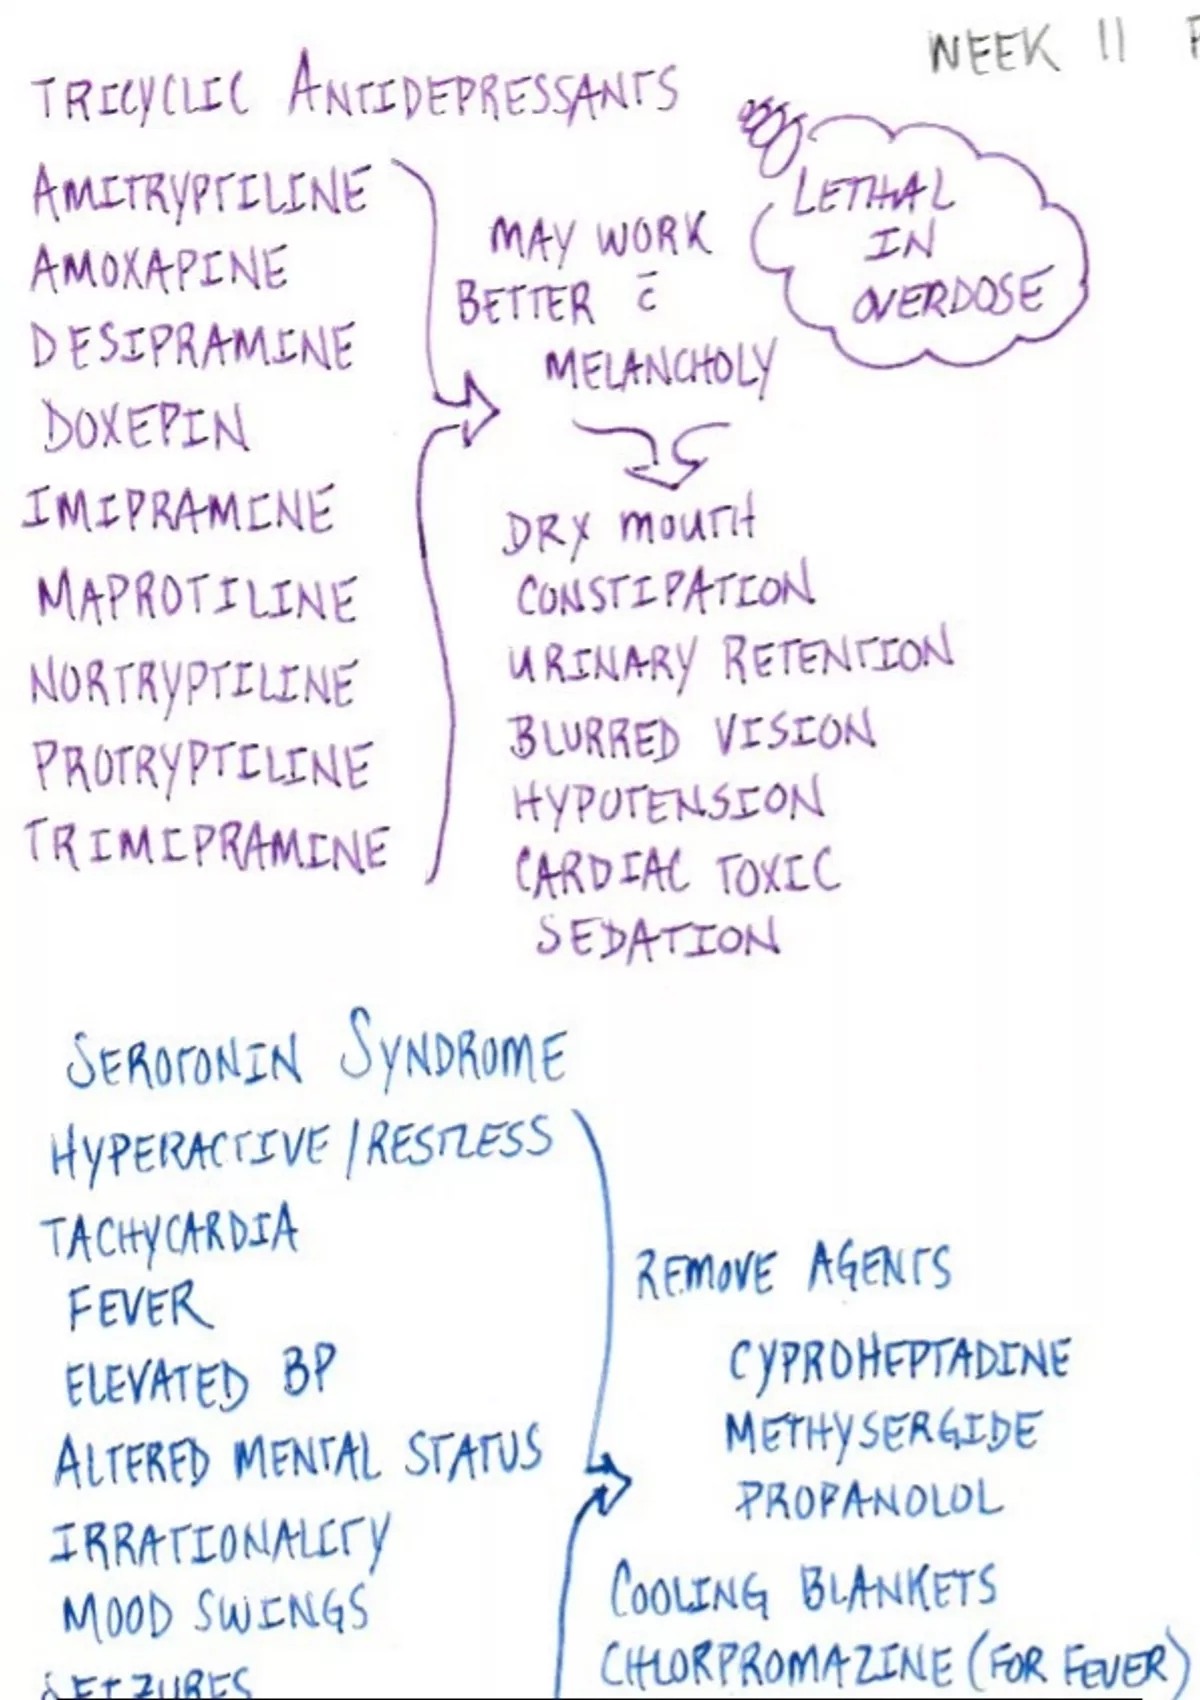 WEEK 11
TRICYCLIC ANTIDEPRESSANTS
AMITRYPTILINE
AMOXAPINE
DESIPRAMINE
DOXEPIN
IMIPRAMINE
MAPROTILINE
NORTRYPTILINE
PROTRYPTILINE
TRIMIPRAMINE
MAY WORK
BETTER c̄
MELANCHOLY
LETHAL
IN
OVERDOSE
DRY MOUTH
CONSTIPATION
URINARY RETENTION
BLURRED VISION
HYPOTENSION
CARDIAC TOXIC
SEDATION
SEROTONIN SYNDROME
HYPERACTIVE/RESTLESS
TACHYCARDIA
FEVER
ELEVATED BP
ALTERED MENTAL STATUS
IRRATIONALITY
MOOD SWINGS
SEIZURES
REMOVE AGENTS
CYPROHEPTADINE
METHYSERGIDE
PROPANOLOL
COOLING BLANKETS
CHLORPROMAZINE (FOR FEVER)